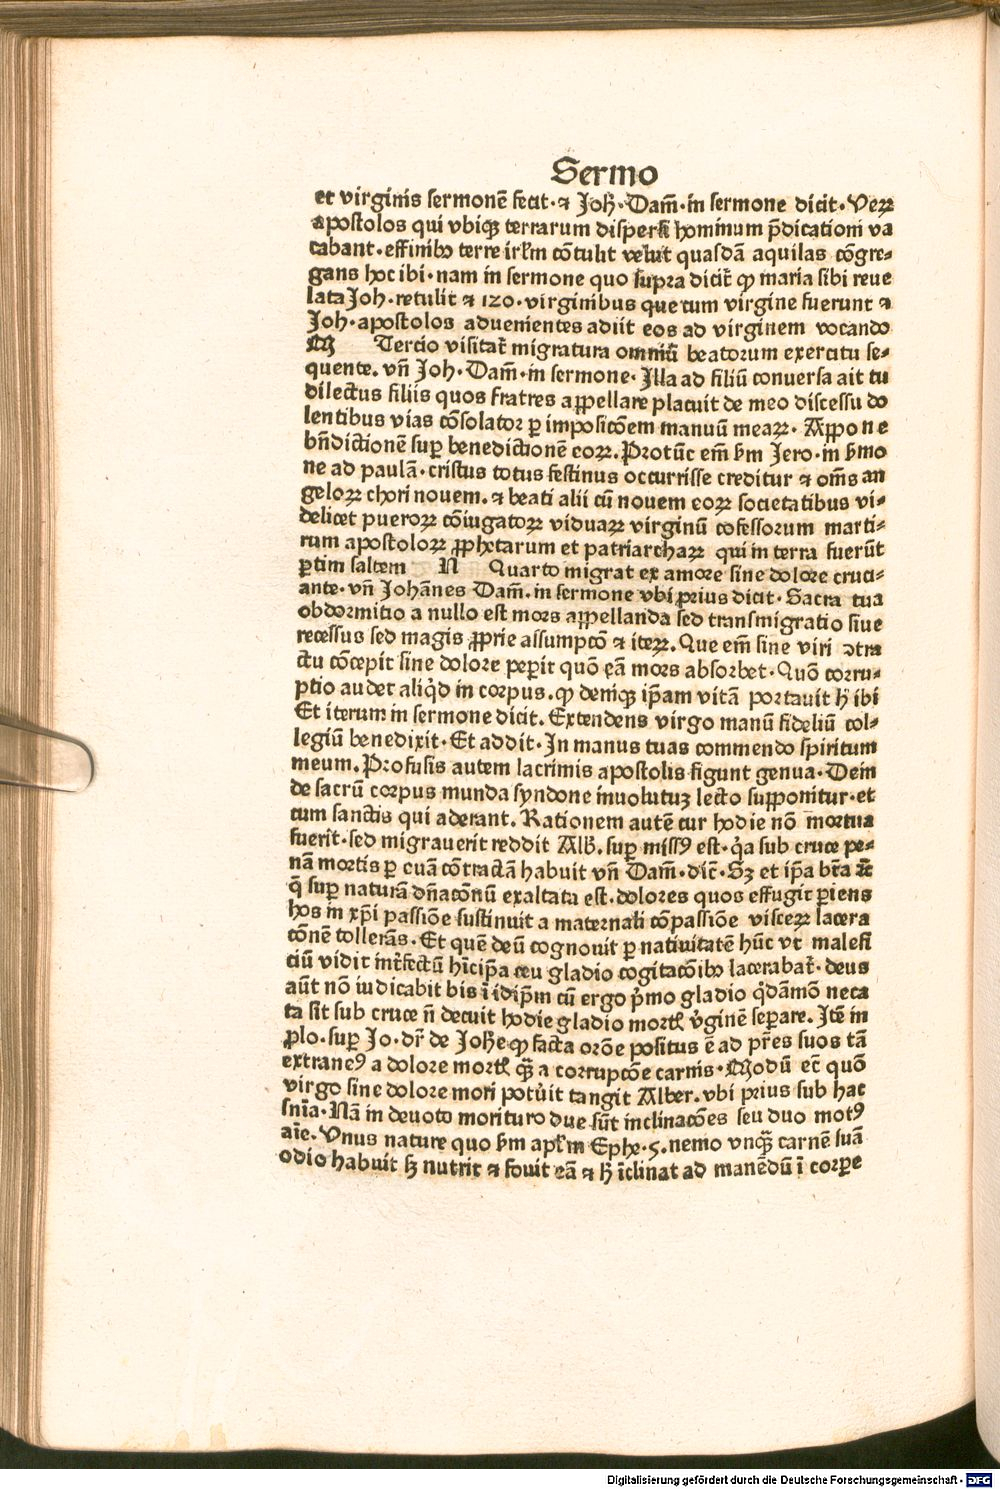 Sermo
et virginis sermonē fecit · ⁊ Joħ · Dam̄ · in sermone dicit · Veꝝ
apostolos qui vbiqꝫ terrarum dispersi hominum p̄dicationi va
cabant · effinibꝫ terre irlm̄ cōtulit velut quasdā aquilas cōgre⸗
gans hoc ibi · nam in sermone quo supra dicit̄ ꝙ maria sibi reue
lata Joh · retulit ⁊ 120 · virginibus que cum virgine fuerunt ⁊
Joh · apostolos aduenientes adiit eos ad virginem vocando
M Tercio visitat̄ migratura omniū beatorum exercitu se⸗
quente. vn̄ Joh · Dam̄ · in sermone · Illa ad filiū conuersa ait tu
dilectus filiis quos fratres appellare placuit de meo discessu do
lentibus vias cōsolator ꝑ imposicōem manuū meaꝝ · Appone
bn̄dictionē suꝑ benedictionē eoꝝ. Protūc em̄ ẜm Jero · in ẜmo
ne ad paulā · cristus totus festinus occurrisse creditur ⁊ om̄s an
geloꝝ chori nouem. ⁊ beati alii cū nouem eoꝝ societatibus vi⸗
delicet pueroꝝ cōiugatoꝝ viduaꝝ virginū cofessorum marti⸗
rum apostoloꝝ ꝓphetarum et patriarchaꝝ qui in terra fuerūt
ꝑtim saltem N Quarto migrat ex amore sine dolore cruci⸗
ante · vn̄ Johānes Dam̄. in sermone vbi prius dicit · Sacra tua
obdormitio a nullo est mors appellanda sed transmigratio siue
recessus sed magis ꝓprie assumpcō ⁊ iteꝝ. Que em̄ sine viri ↄtra
ctu cōcepit sine dolore peperit quō eā mors absorbet · Quō corru⸗
ptio audet aliq̇d in corpus. ꝙ deniqꝫ ip̄am vitā portauit ħ ibi
Et iterum in sermone dicit. Extendens virgo manū fideliū col⸗
legiū benedixit · Et addit · In manus tuas commendo spiritum
meum. Profusis autem lacrimis apostolis figunt genua · Dein
de sacrū corpus munda syndone inuolutuꝫ lecto supponitur · et
cum sanctis qui aderant. Rationem autē cur hodie nō mortua
fuerit · sed migrauerit reddit Alb̄. suꝑ missꝰ est · q̇a sub cruce pe⸗
nā mortis ꝑ euā cōtractā habuit vn̄ Dam̄ · dic̄ · Sꝫ et ip̄a bt̄a
q̄ suꝑ naturā dn̄acōnū exaltata est. dolores quos effugit ꝑiens
hos in xp̄i passiōe sustinuit a maternali cōpassiōe visceꝝ lacera
cōnē tollerās. Et quē deū cognouit ꝑ natiuitatē hūc vt malefi
ciū vidit int̄fectū ceu gladio cogitacōibꝫ lacerabat̄ · deus
aūt nō iudicabit bis ī idip̄m cū ergo p̓mo gladio q̇dāmō neca
ta sit sub cruce n̄ decuit hodie gladio mortꝭ v̓ginē seꝑare. Itē in
ꝓlo. suꝑ Jo · dr̄ de Joħe ꝙ facta orōe positus ē ad pr̄es suos tā
extraneꝰ a dolore mortꝭ qꝫ̄ a corrupcōe carnis · Modū quō
virgo sine dolore mori potu̓it tangit Alber. vbi prius sub hac
sn̄ia · Nā in deuoto morituro due sūt inclinacōes seu duo motꝰ
aīe. Vnus nature quo ẜm apl̄m Ephe · 5. nemo vnqꝫ̄ carnē suā
odio habuit sꝫ nutrit ⁊ fouit eā ⁊ ħ īclinat ad manēdū ī corꝑe
Digitalisierung gefördert durch die Deutsche Forschungsgemeinschaft · DFG